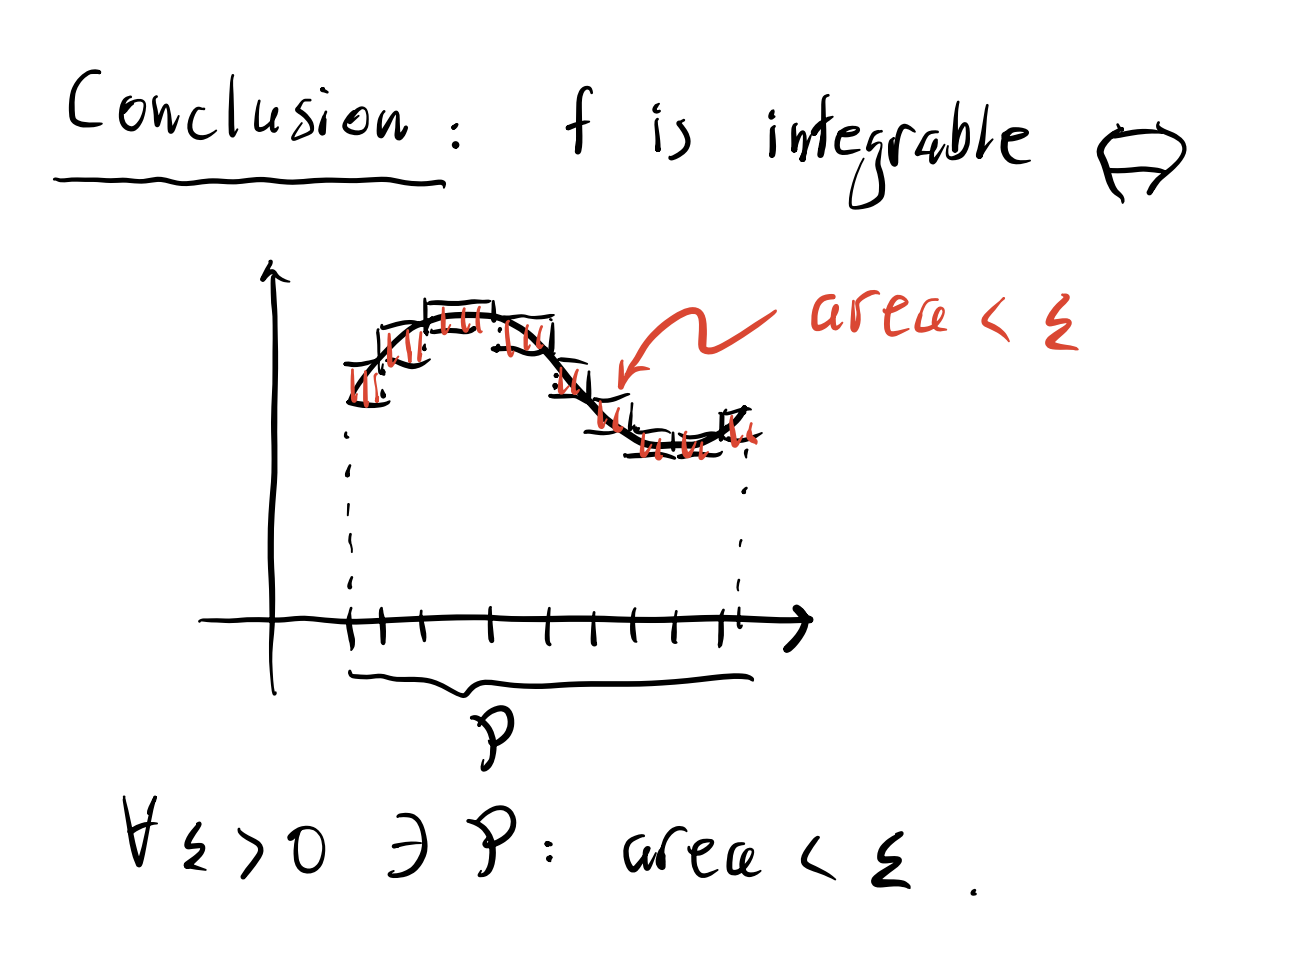 Conclusion: f is integrable ⇔
area < ε
P
∀ ε > 0 ∃ P: area < ε.